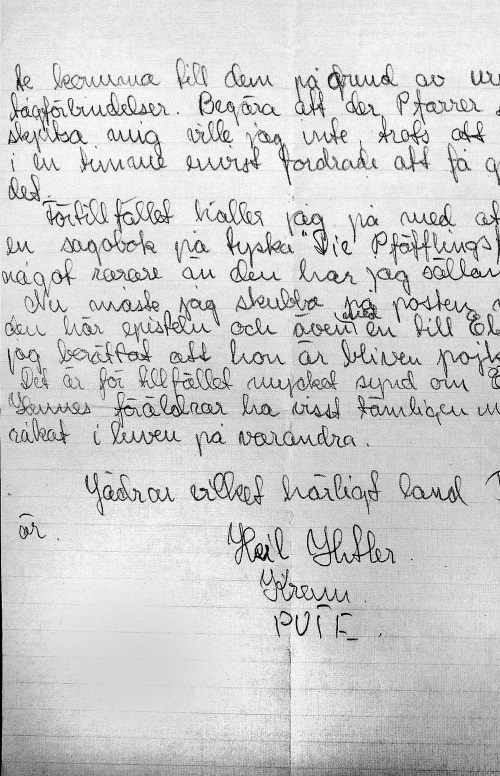 te komma till dem på grund av
tågförbindelser. Begära att der Pfarrer
skjutsa mig ville jag inte, trots att
i en timme envist fordrade att få
det.
Förtillfället håller jag på med
en sagobok på tyska "Die Pfäfflings
något rarare än den har jag sällan
Nu måste jag skubba på posten
den här episteln och även med en till
jag berättat att hon är bliven
Det är för tillfället mycket synd om
Hannes föräldrar ha visst tämligen
råkat i luven på varandra.
Jädrar vilket härligt land
är.
Heil Hitler.
Kram
PUTE.